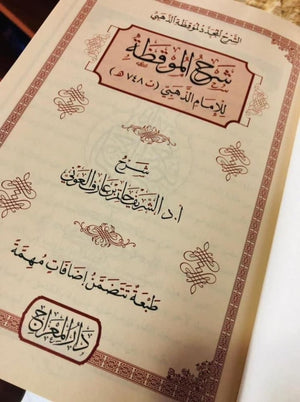 الشرح الجديد لموقظة الذهبي
شرح الموقظة
للإمام الذهبي (ت ٧٤٨ هـ)
شرح
أ.د. الشريف حاتم بن عارف العوني
طبعة تتضمن إضافات مهمة
دار المعراج